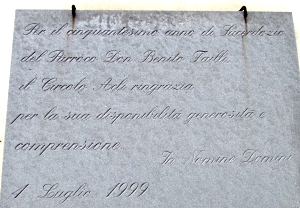 Per il cinquantesimo anno di Sacerdozio
del Parroco Don Benito Failli
il Circolo Acli ringrazia
per la sua disponibilità generosità e
comprensione
In Nomine Domini
4 Luglio 1999